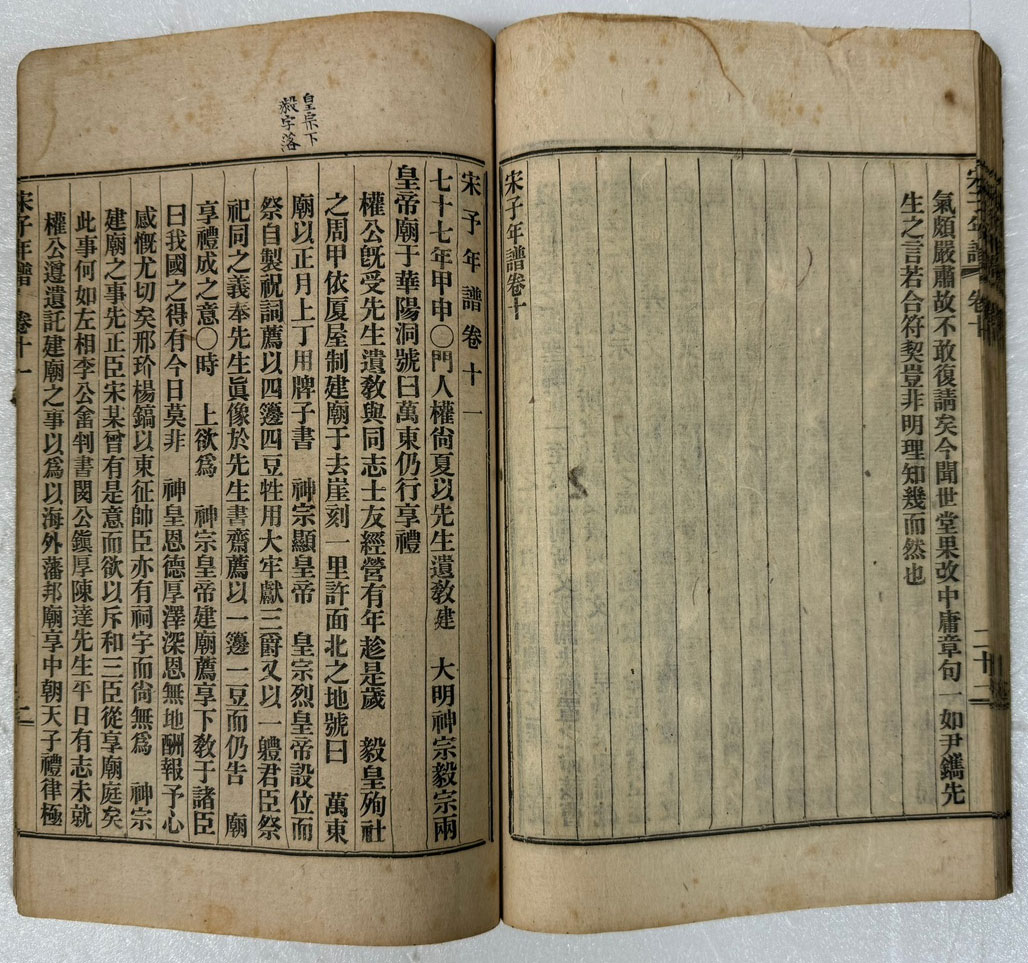 宋子年譜 卷十
二十二
氣頗嚴肅故不敢復請矣今聞世堂果改中庸章句一如尹鑴先
生之言若合符契豈非明理知幾而然也
宋子年譜卷十
皇宗下
毅字落
宋子年譜卷十一
七十七年甲申〇門人權尙夏以先生遺敎建 大明神宗毅宗兩
皇帝廟于華陽洞號曰萬東仍行享禮
權公旣受先生遺敎與同志士友經營有年趁是歲 毅皇殉社
之周甲依厦屋制建廟于去崖刻一里許面北之地號曰 萬東
廟以正月上丁用牌子書 神宗顯皇帝 皇宗烈皇帝設位而
祭自製祝詞薦以四籩四豆牲用大牢獻三爵又以一軆君臣祭
祀同之義奉先生眞像於先生書齋薦以一籩一豆而仍告 廟
享禮成之意〇時 上欲爲 神宗皇帝建廟薦享下敎于諸臣
曰我國之得有今日莫非 神皇恩德厚澤深恩無地酬報予心
感慨尤切矣邢玠楊鎬以東征帥臣亦有祠宇而尙無爲 神宗
建廟之事先正臣宋某曾有是意而欲以斥和三臣從享廟庭矣
此事何如左相李公畬判書閔公鎭厚陳達先生平日有志未就
權公遵遺託建廟之事以爲以海外藩邦廟享中朝天子禮律極
宋子年譜 卷十一